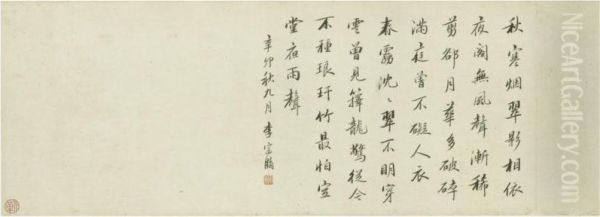 秋寒烟翠影相依
夜阁無風聲漸稀
剪却月華多破碎
滿庭曾不礙人衣
春霧沈〻翠不明穿
雲曾見籜龍驚從今
不種琅玕竹最怕空
堂夜雨聲
辛卯秋九月 李宗
NiceArtGallery.com